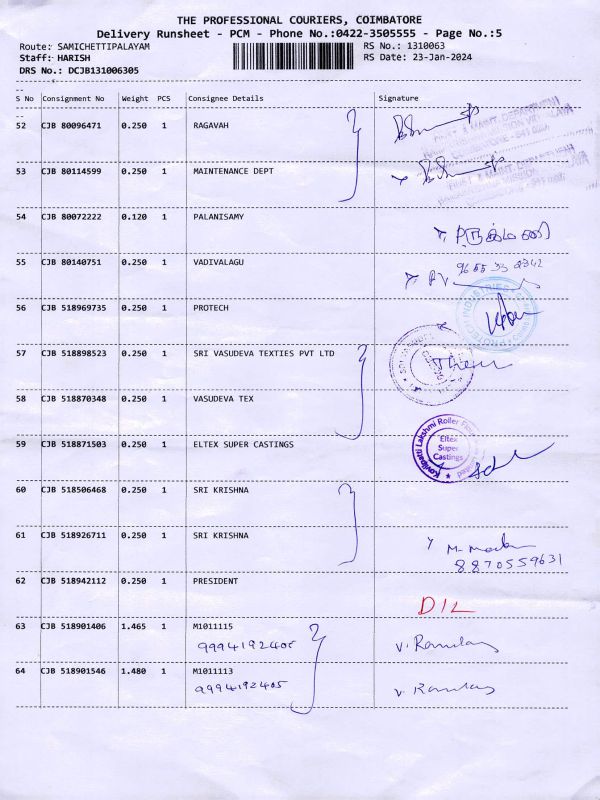 THE PROFESSIONAL COURIERS, COIMBATORE
Delivery Runsheet - PCM - Phone No.:0422-3505555 - Page No.:5
Route: SAMICHETTIPALAYAM RS No.: 1310063
Staff: HARISH RS Date: 23-Jan-2024
DRS No.: DCJB131006305
S No Consignment No Weight PCS Consignee Details Signature
52 CJB 80096471 0.250 1 RAGAVAH
53 CJB 80114599 0.250 1 MAINTENANCE DEPT
54 CJB 80072222 0.120 1 PALANISAMY
55 CJB 80140751 0.250 1 VADIVALAGU
56 CJB 518969735 0.250 1 PROTECH
PROTECH INDUSTRIES
57 CJB 518898523 0.250 1 SRI VASUDEVA TEXTIES PVT LTD
58 CJB 518870348 0.250 1 VASUDEVA TEX
59 CJB 518871503 0.250 1 ELTEX SUPER CASTINGS
Kovilpatti Lakshmi Roller Flour
Eltex
Super
Castings
60 CJB 518506468 0.250 1 SRI KRISHNA
61 CJB 518926711 0.250 1 SRI KRISHNA
8870559631
62 CJB 518942112 0.250 1 PRESIDENT
D/L
63 CJB 518901406 1.465 1 M1011115
9994192405
64 CJB 518901546 1.480 1 M1011113
9994192405